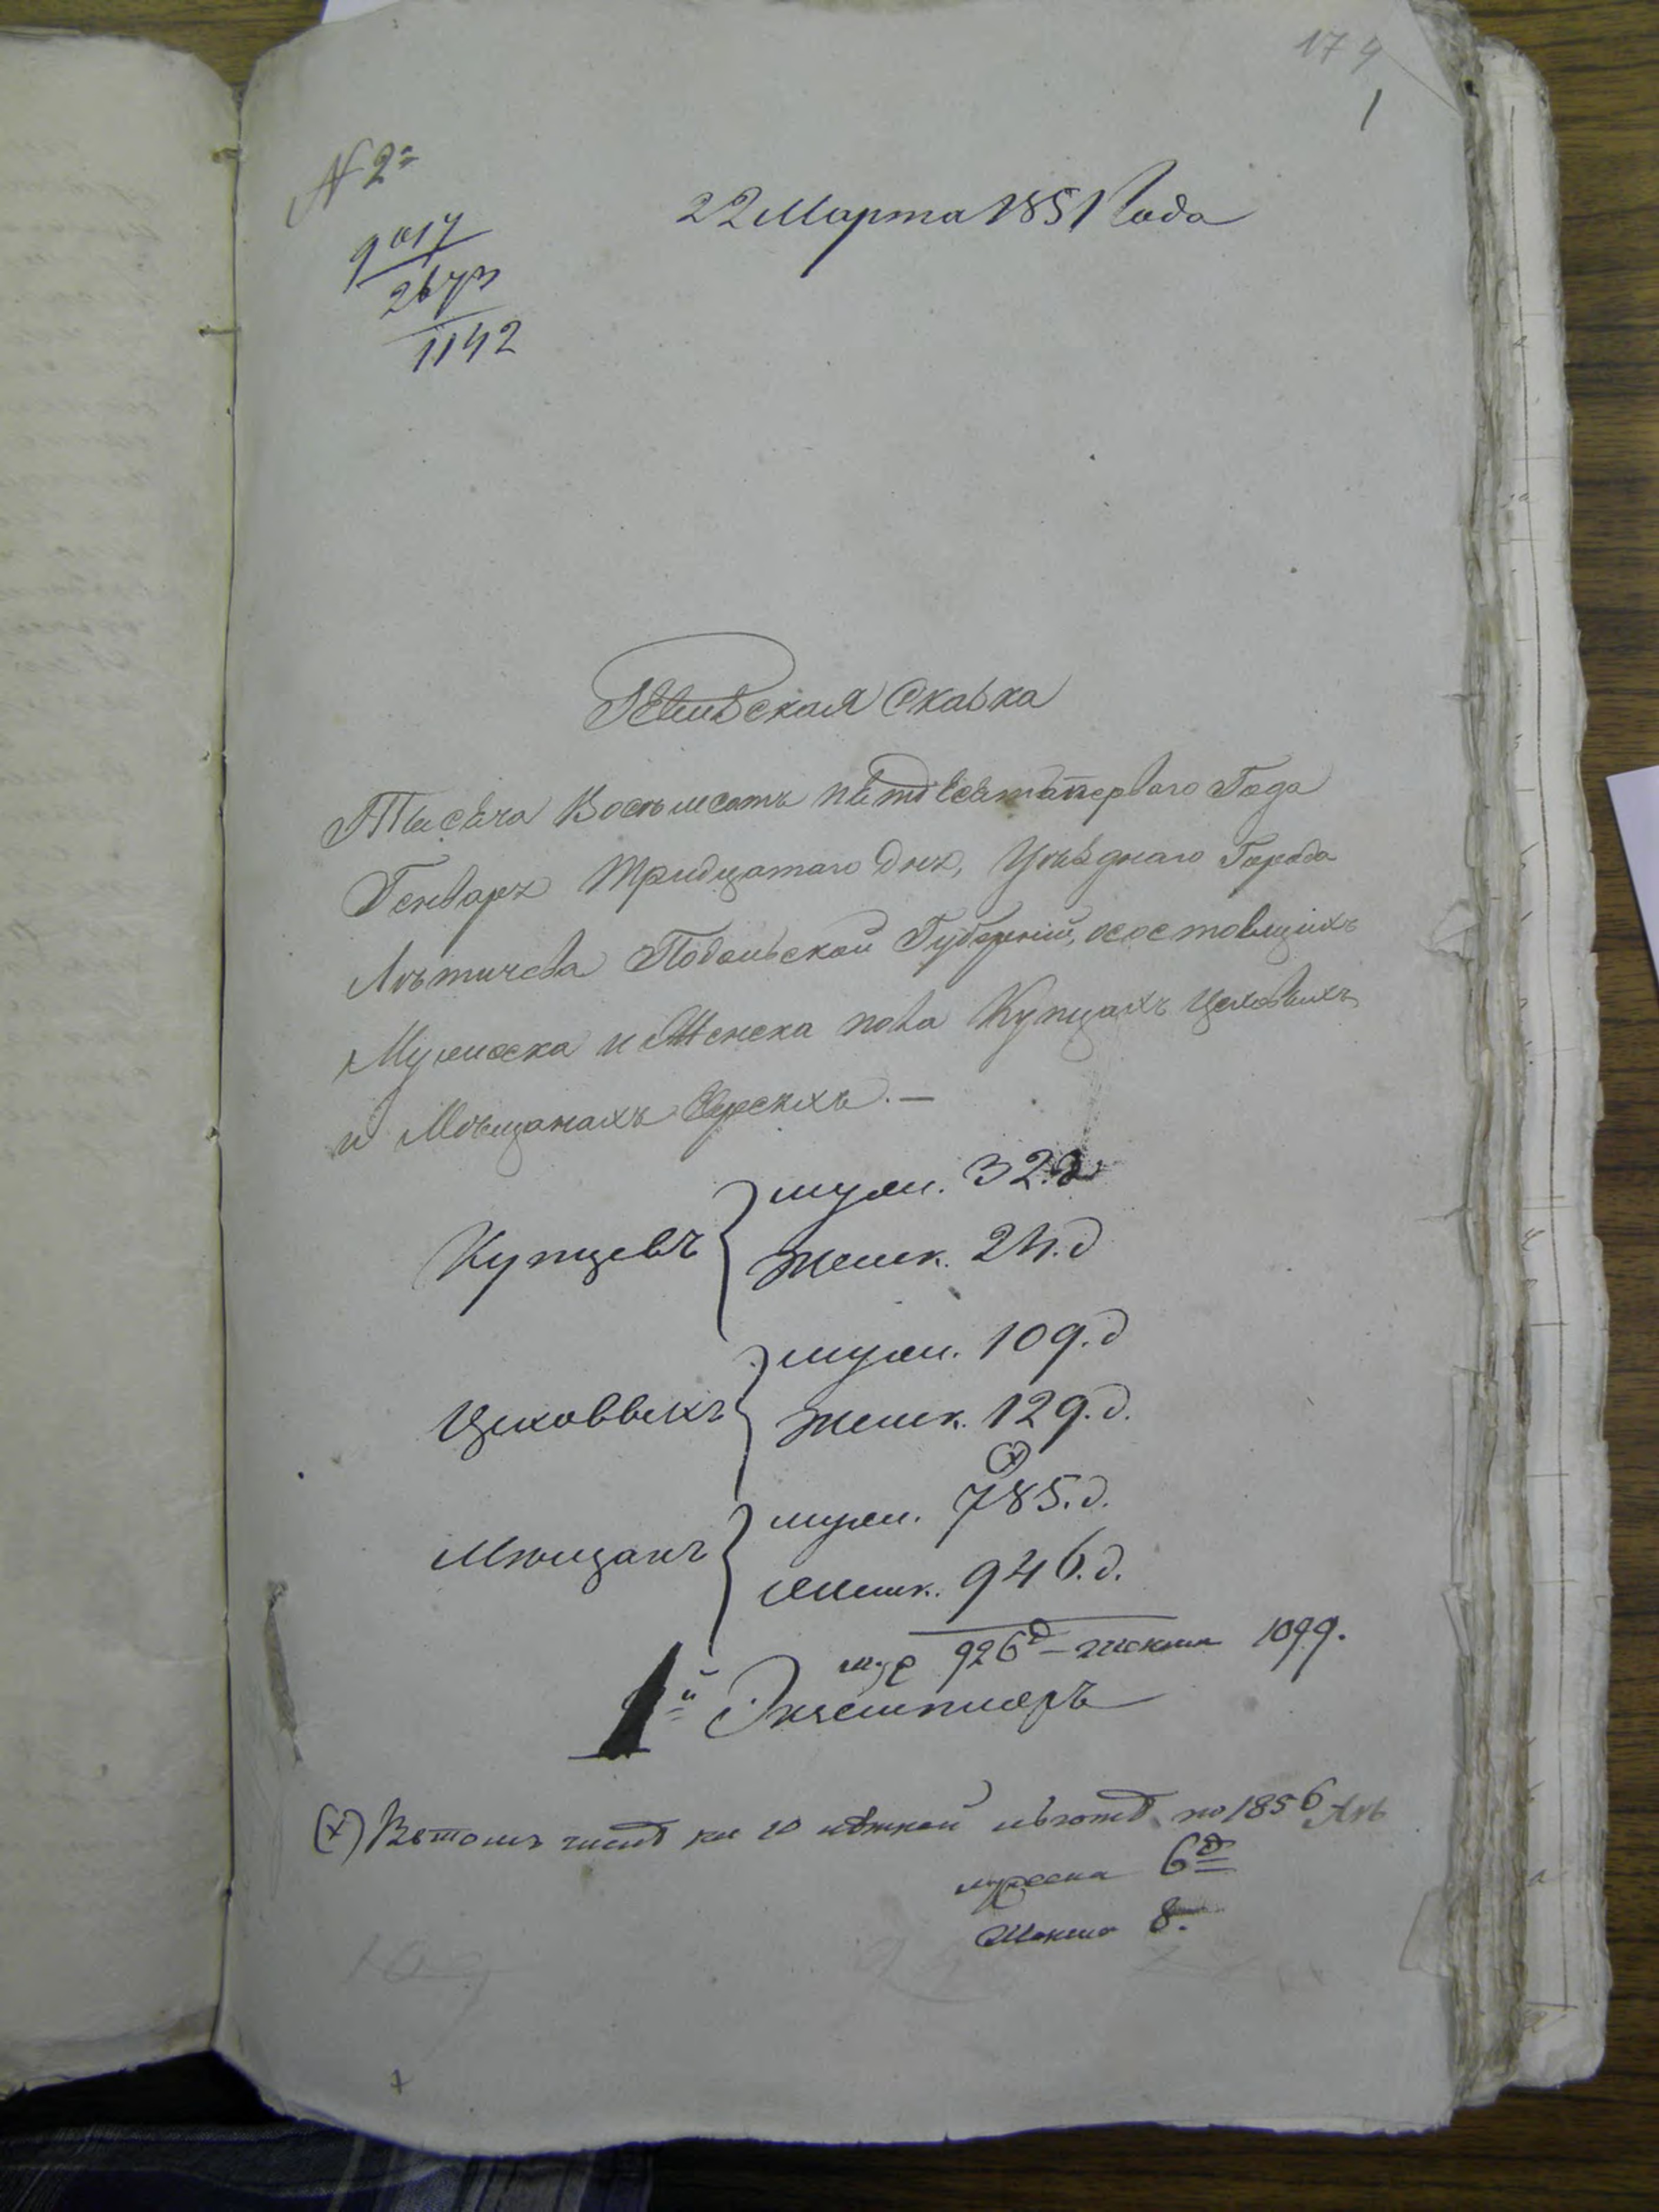 174
1
N 2
22 Марта 1851 Года
1142
Ревизская Сказка
Тысеча Восемьсотъ петдесятаперваго Года
Генваря тридцатаго дня, Уезднаго Города
Лѣтичева Подольской Губерніи, осостоящихъ
Мужеска и Женска пола Купцахъ Цеховыхъ
и Мѣщанахъ Евреяхъ. —
Купцевъ { муж. 32. д
женск. 24. д
Цеховвыхъ { муж. 109. д
женск. 129. д.
(х)
Мѣщанъ { муж. 785. д.
женск. 946. д.
муж 926 д – женска 1099.
1й Экземпляръ
(х) Вътомъ числѣ на 10 лѣтней льготѣ по 1856
мужеска 6 д
Женска 8.